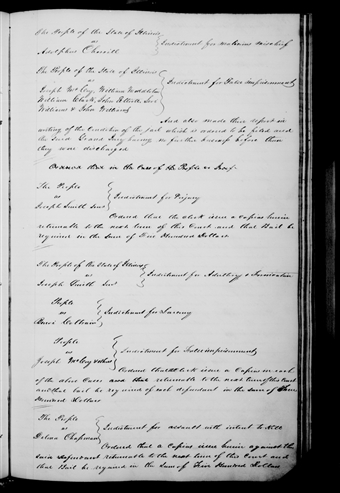 The People of the State of Illinois
vs
Adolphus Cherrill } Indictment for malicious mischief
The People of the State of Illinois
vs } Indictment for False imprisonment
Joseph McCoy, William Middleton
William Clark, John Elliott, Levi
Williams & John Williams
And also made their report in
writing of the Condition of the jail which is ordered to be filed and
the said Grand Jury having no further business before them
they were discharged
Ordered that in the Case of the People vs
The People
vs } Indictment for Perjury
Joseph Smith Senr
Ordered that the clerk issue a Capias herein
returnable to the next term of this Court and that Bail be
required in the Sum of Five Hundred Dollars
The People of the State of Illinois
vs } Indictment for Adultery & Fornication
Joseph Smith Senr
People
vs } Indictment for Larceny
People
vs } Indictment for False imprisonment
Joseph McCoy & others
Ordered that Clerk issue a Capias in each
of the above Cases and that returnable to the next term of this Court
and that bail be required of each defendant in the sum of
Hundred Dollars
The People
vs } Indictment for assault with intent to Kill
Dolson Chapman
Ordered that a Capias issue herein against the
said defendant returnable to the next term of this Court and
that Bail be required in the Sum of Five Hundred Dollars